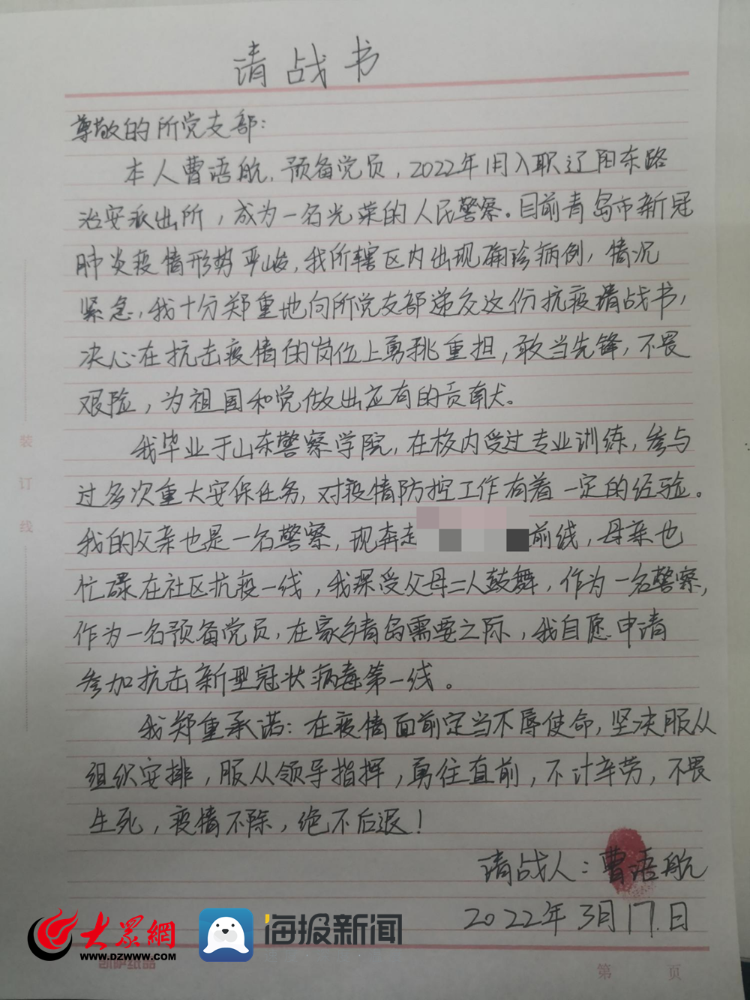 请战书
尊敬的所党支部：
本人曹语航，预备党员，2022年1月入职辽阳东路
治安派出所，成为一名光荣的人民警察。目前青岛市新冠
肺炎疫情形势严峻，我所辖区内出现确诊病例，情况
紧急，我十分郑重地向所党支部递交这份抗疫请战书，
决心在抗击疫情的岗位上勇挑重担，敢当先锋，不畏
艰险，为祖国和党做出应有的贡献。
我毕业于山东警察学院，在校内受过专业训练，参与
过多次重大安保任务，对疫情防控工作有着一定的经验。
我的父亲也是一名警察，现奔赴前线，母亲也
忙碌在社区抗疫一线，我深受父母二人鼓舞，作为一名警察，
作为一名预备党员，在家乡青岛需要之际，我自愿申请
参加抗击新型冠状病毒第一线。
我郑重承诺：在疫情面前定当不辱使命，坚决服从
组织安排，服从领导指挥，勇往直前，不计辛劳，不畏
生死，疫情不除，绝不后退！
请战人：曹语航
2022年3月17日
装订线
大众網
www.dzwww.com
海报新闻
第 页